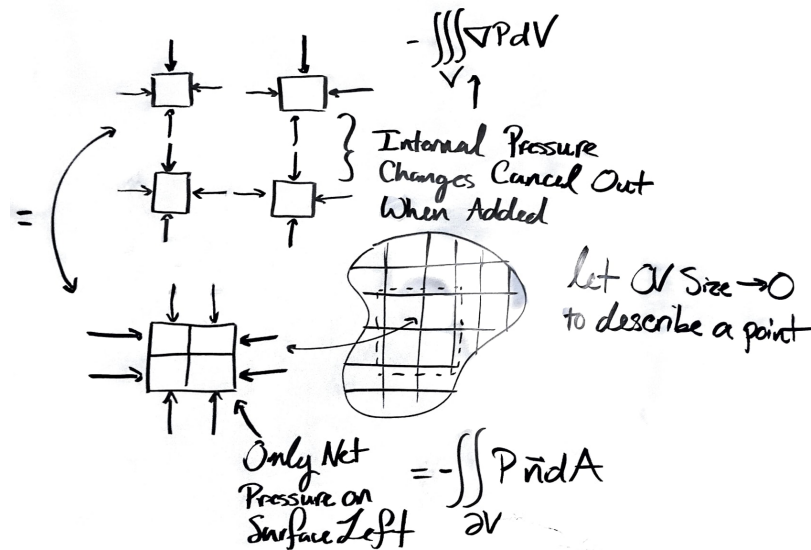 - ∭_V ∇P dV
Internal Pressure
Changes Cancel Out
When Added
=
let CV Size → 0
to describe a point
Only Net
Pressure on
Surface Left
= - ∬_∂V P n⃗ dA